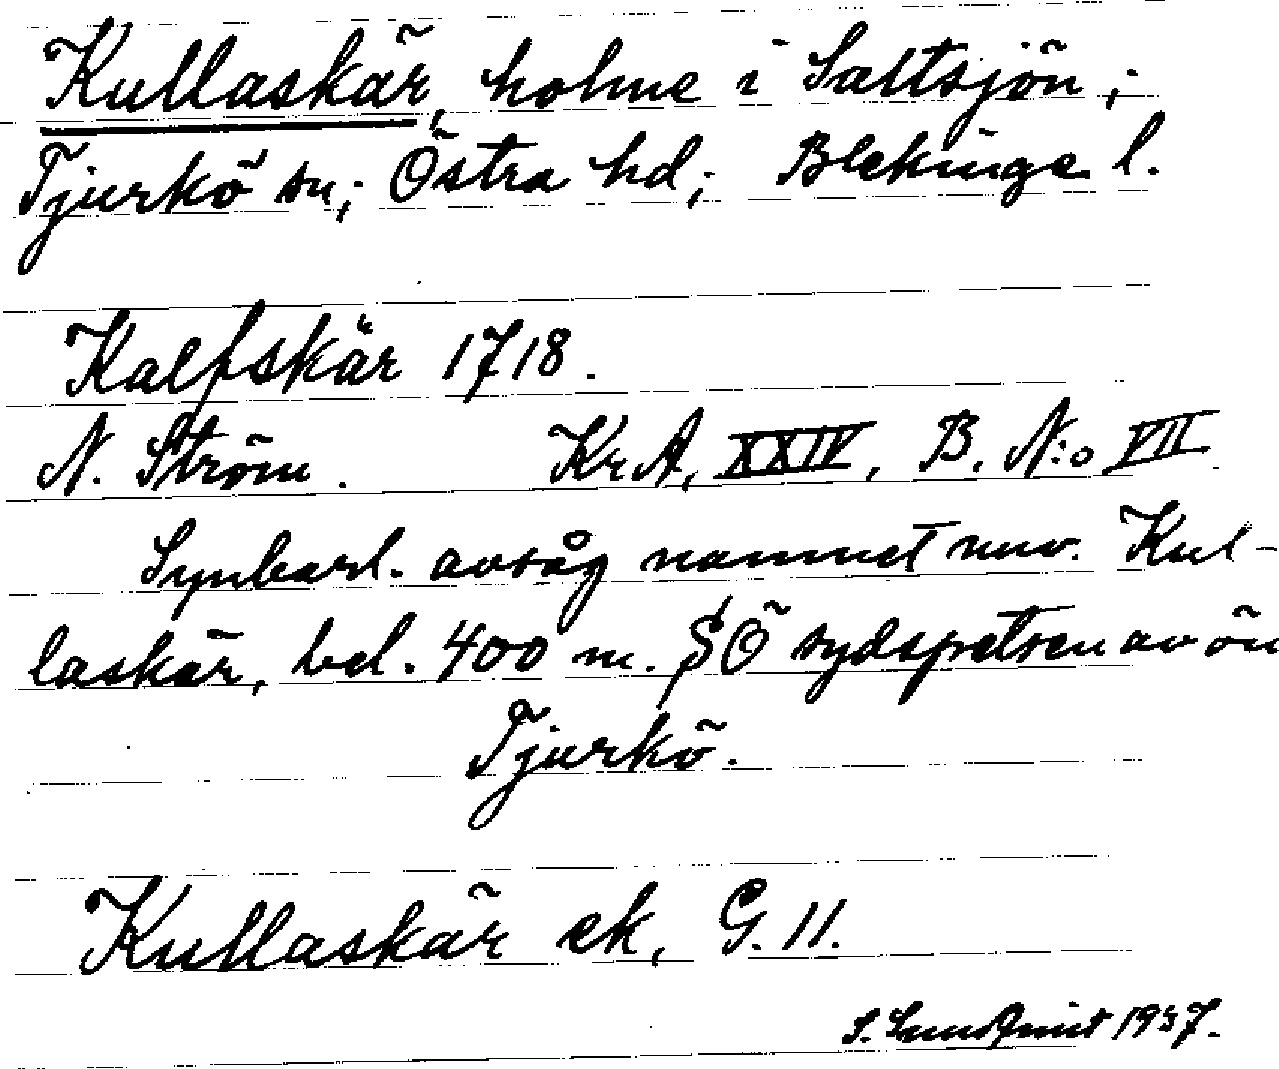 Kullaskär, holme i Saltsjön;
Tjurkö sn; Östra hd; Blekinge l.
Kalfskär 1718.
N. Ström. KrA, XXIV, B. N:o VII
Synbarl. avsåg namnet nuv. Kul-
laskär, bel. 400 m. SÖ sydspetsen av ön
Tjurkö.
Kullaskär ek, G. 11.
S. Sundquist 1937.